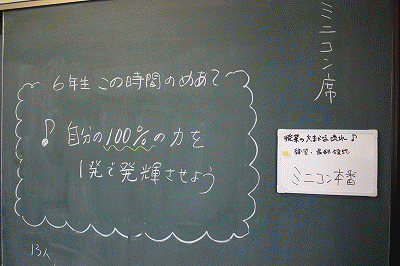 ミニコン席
6年生 この時間のめあて
♪ 自分の100%の力を
1発で発揮させよう
授業の大まかな流れ♪
ミニコン本番
13人